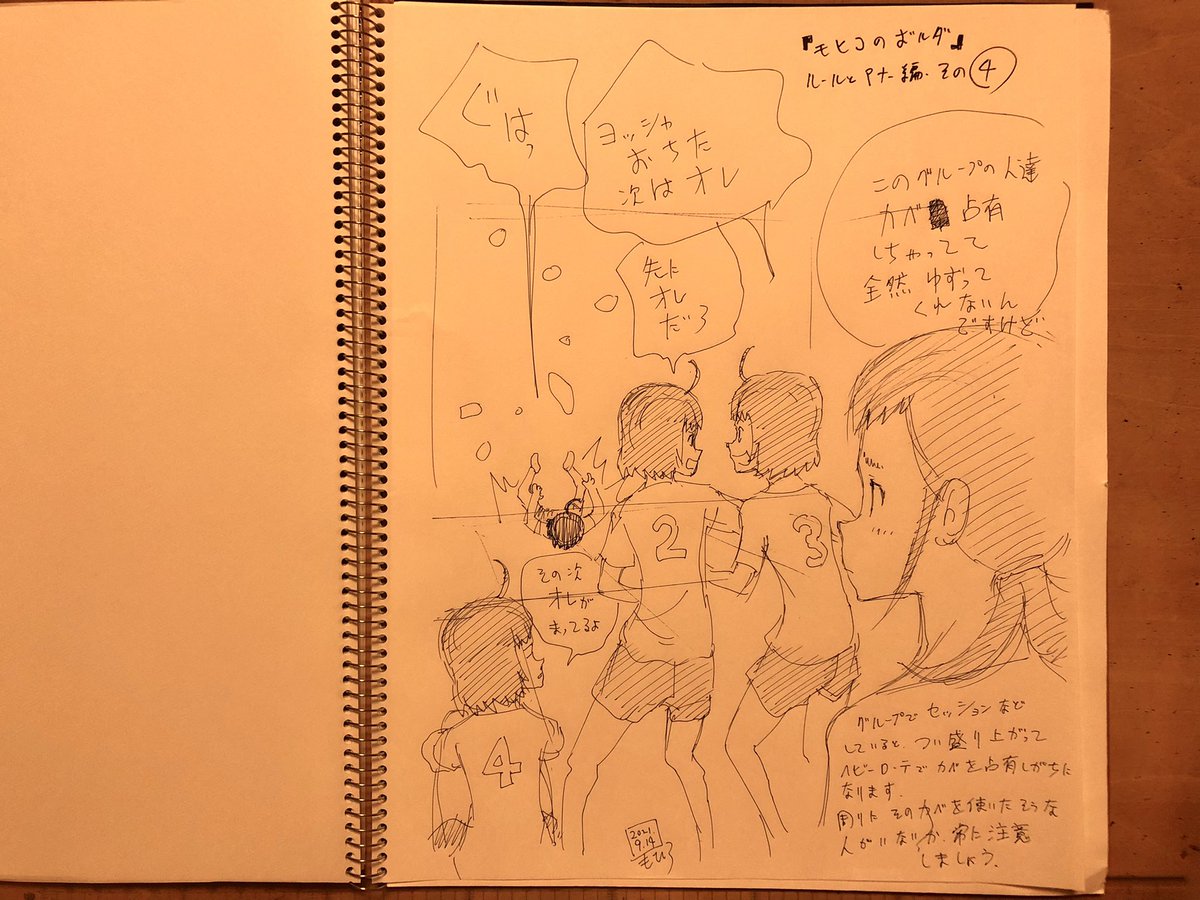 『モヒコのボルダ』
ルールとマナー編.その④
ぐはっ
ヨッシャ
おちた
次はオレ
先に
オレ
だろ
このグループの人達
カベ占有
しちゃってて
全然ゆずって
くれないん
ですけど
その次
オレが
まってるよ
2
3
4
グループでセッションなど
していると、つい盛り上がって
ヘビーローテでカベを占有しがちに
なります.
周りにそのカベを使いたそうな
人がいないか、常に注意
しましょう.
2021.
9.14
もひろ